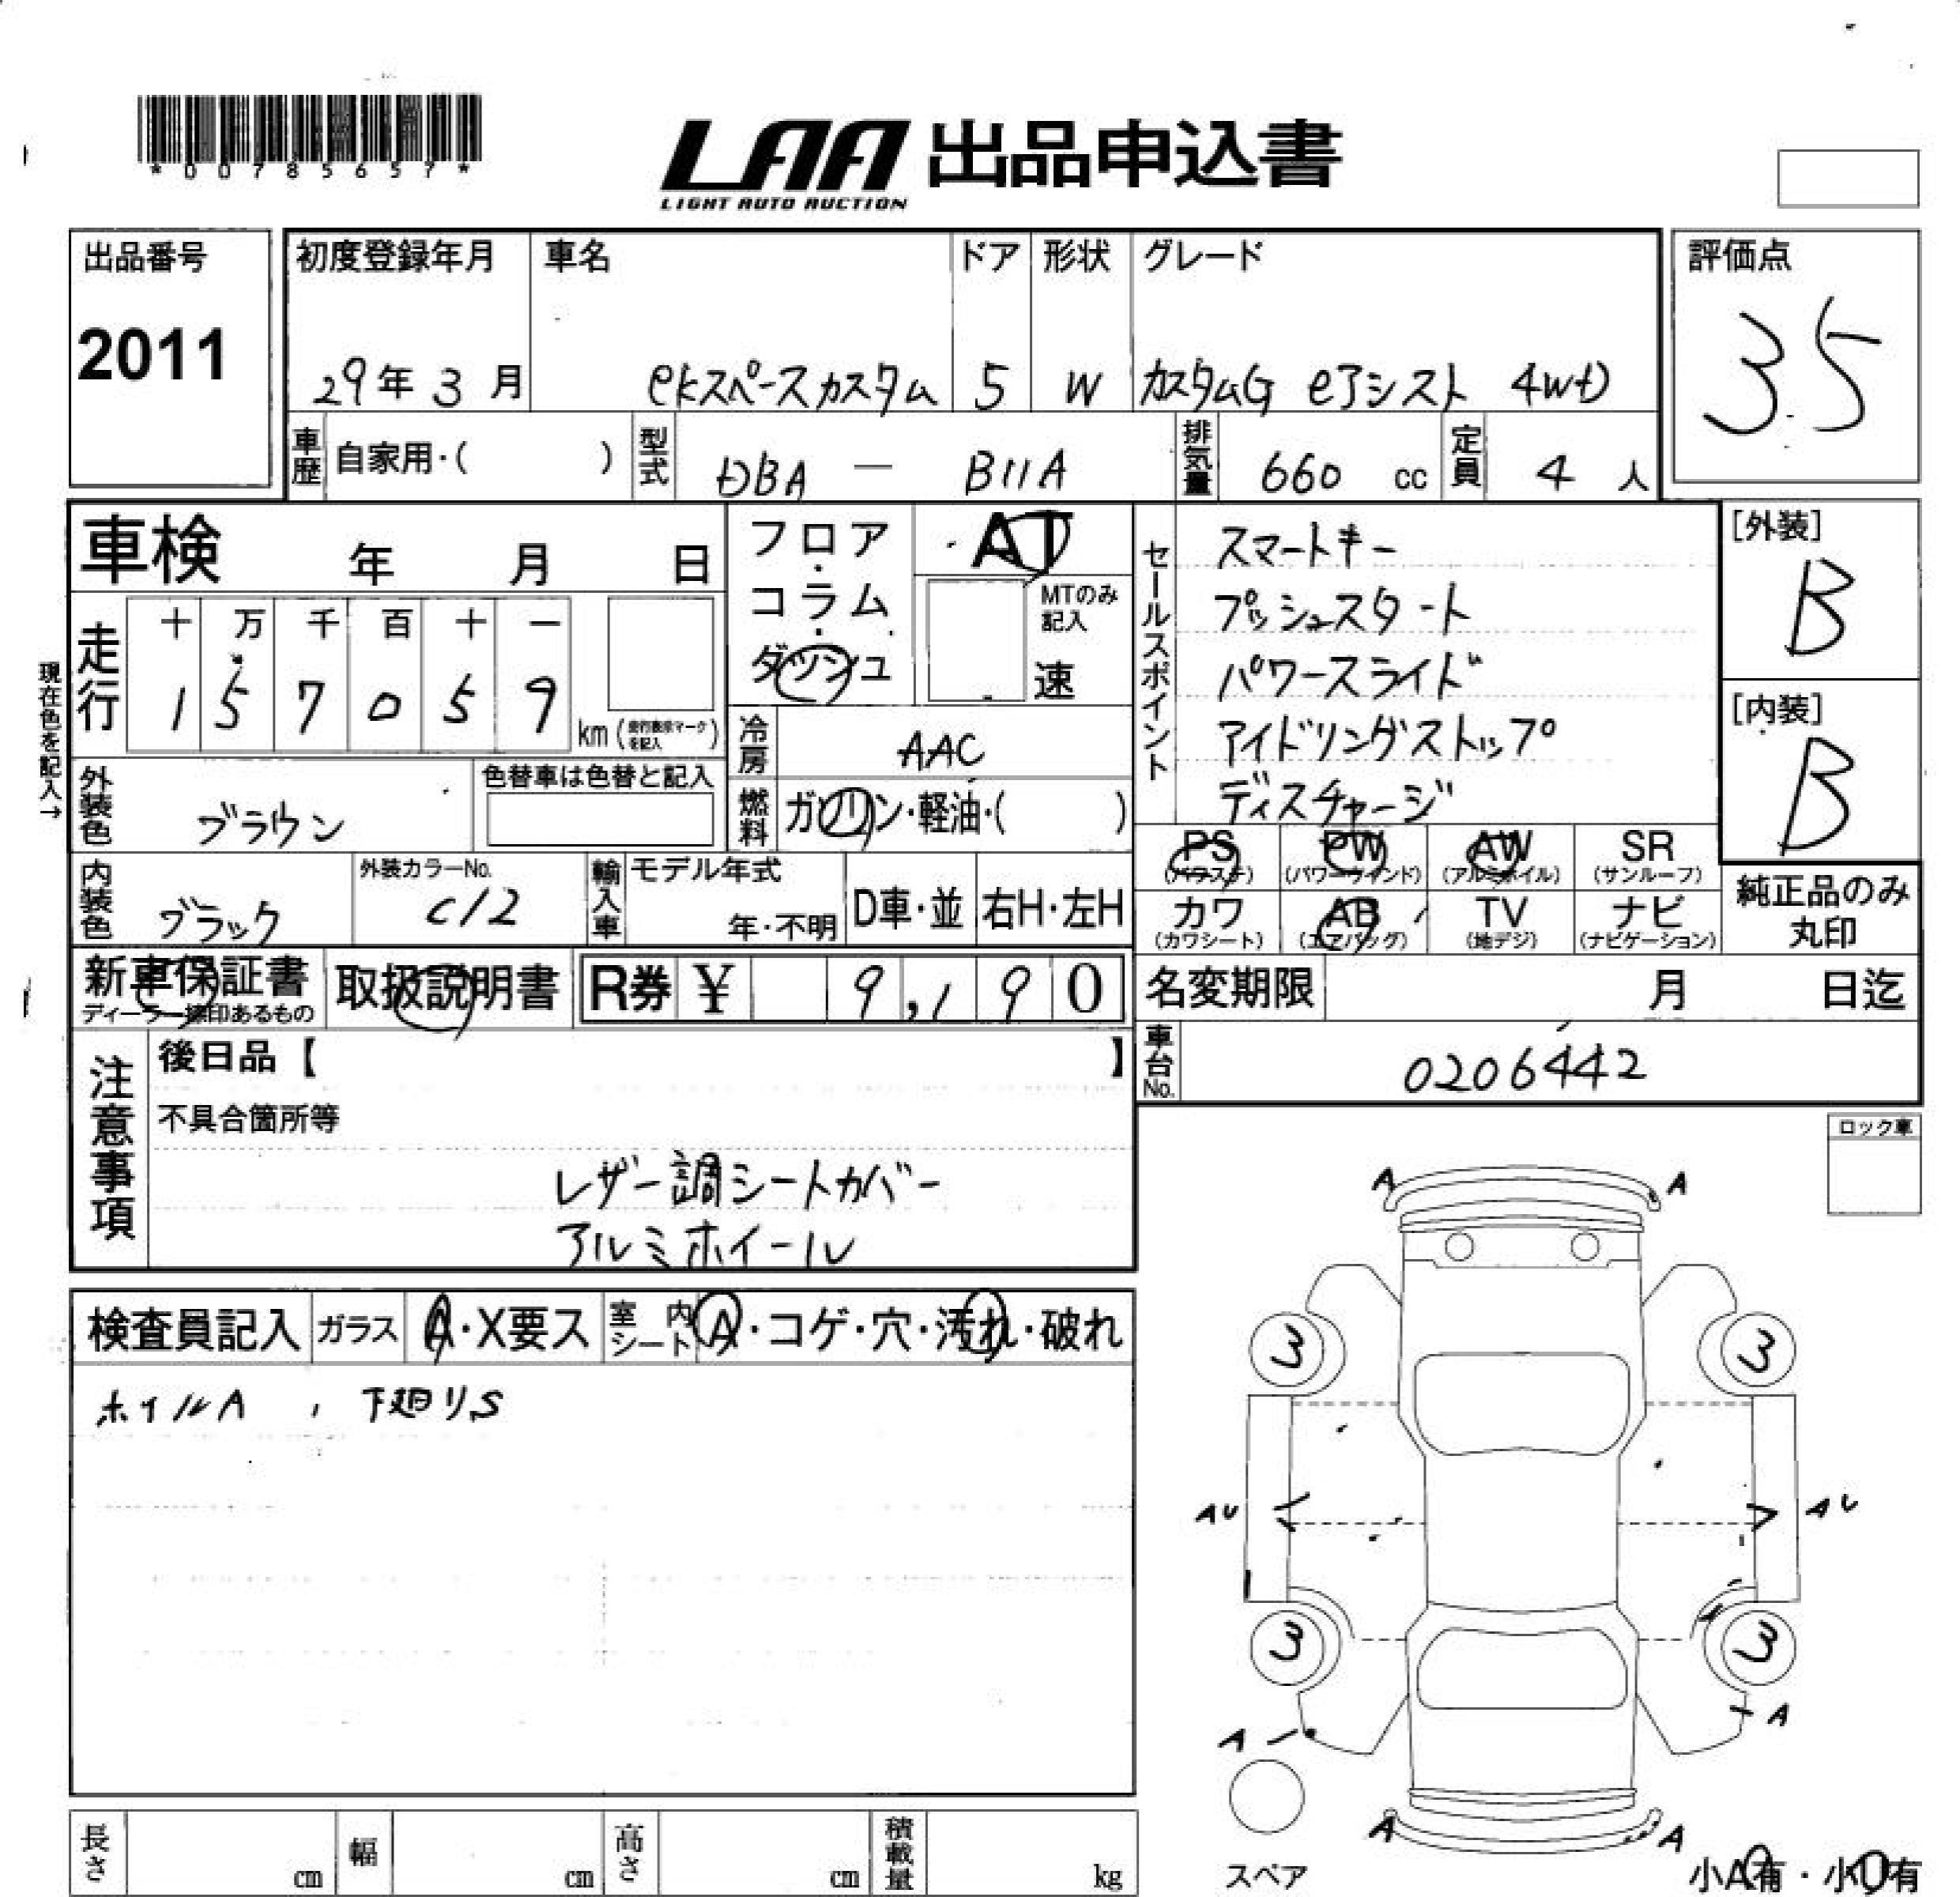 *00785657*
LAA 出品申込書
LIGHT AUTO AUCTION
出品番号
2011
初度登録年月
29年3月
車名
ekスペースカスタム
ドア
5
形状
W
グレード
カスタムG eアシスト 4WD
評価点
3.5
車歴
自家用・( )
型式
DBA - B11A
排気量
660 cc
定員
4 人
車検 年 月 日
フロア・コラム・ダッシュ
AT
MTのみ記入
速
セールスポイント
スマートキー
プッシュスタート
パワースライド
アイドリングストップ
ディスチャージ
[外装]
B
[内装]
B
現在色を記入→
走行
十 万 千 百 十 一
1 5 7 0 5 9
km (走行表示マークを記入)
冷房
AAC
燃料
ガソリン・軽油・( )
外装色
ブラウン
色替車は色替と記入
内装色
ブラック
外装カラーNo.
C12
輸入車
モデル年式
年・不明
D車・並
右H・左H
PS
(パワステ)
PW
(パワーウインド)
AW
(アルミホイル)
SR
(サンルーフ)
カワ
(カワシート)
AB
(エアバッグ)
TV
(地デジ)
ナビ
(ナビゲーション)
純正品のみ
丸印
新車保証書
ディーラー捺印あるもの
取扱説明書
R券 ¥ 9,190
名変期限 月 日迄
車台No.
0206442
注意事項
後日品【 】
不具合箇所等
レザー調シートカバー
アルミホイール
ロック車
検査員記入
ガラス
A・X要ス
室内シート
A・コゲ・穴・汚れ・破れ
ホイルA , 下廻りS
A A
3 3
AU AU
3 3
A A
A A
スペア
小A有・小U有
長さ cm
幅 cm
高さ cm
積載量 kg